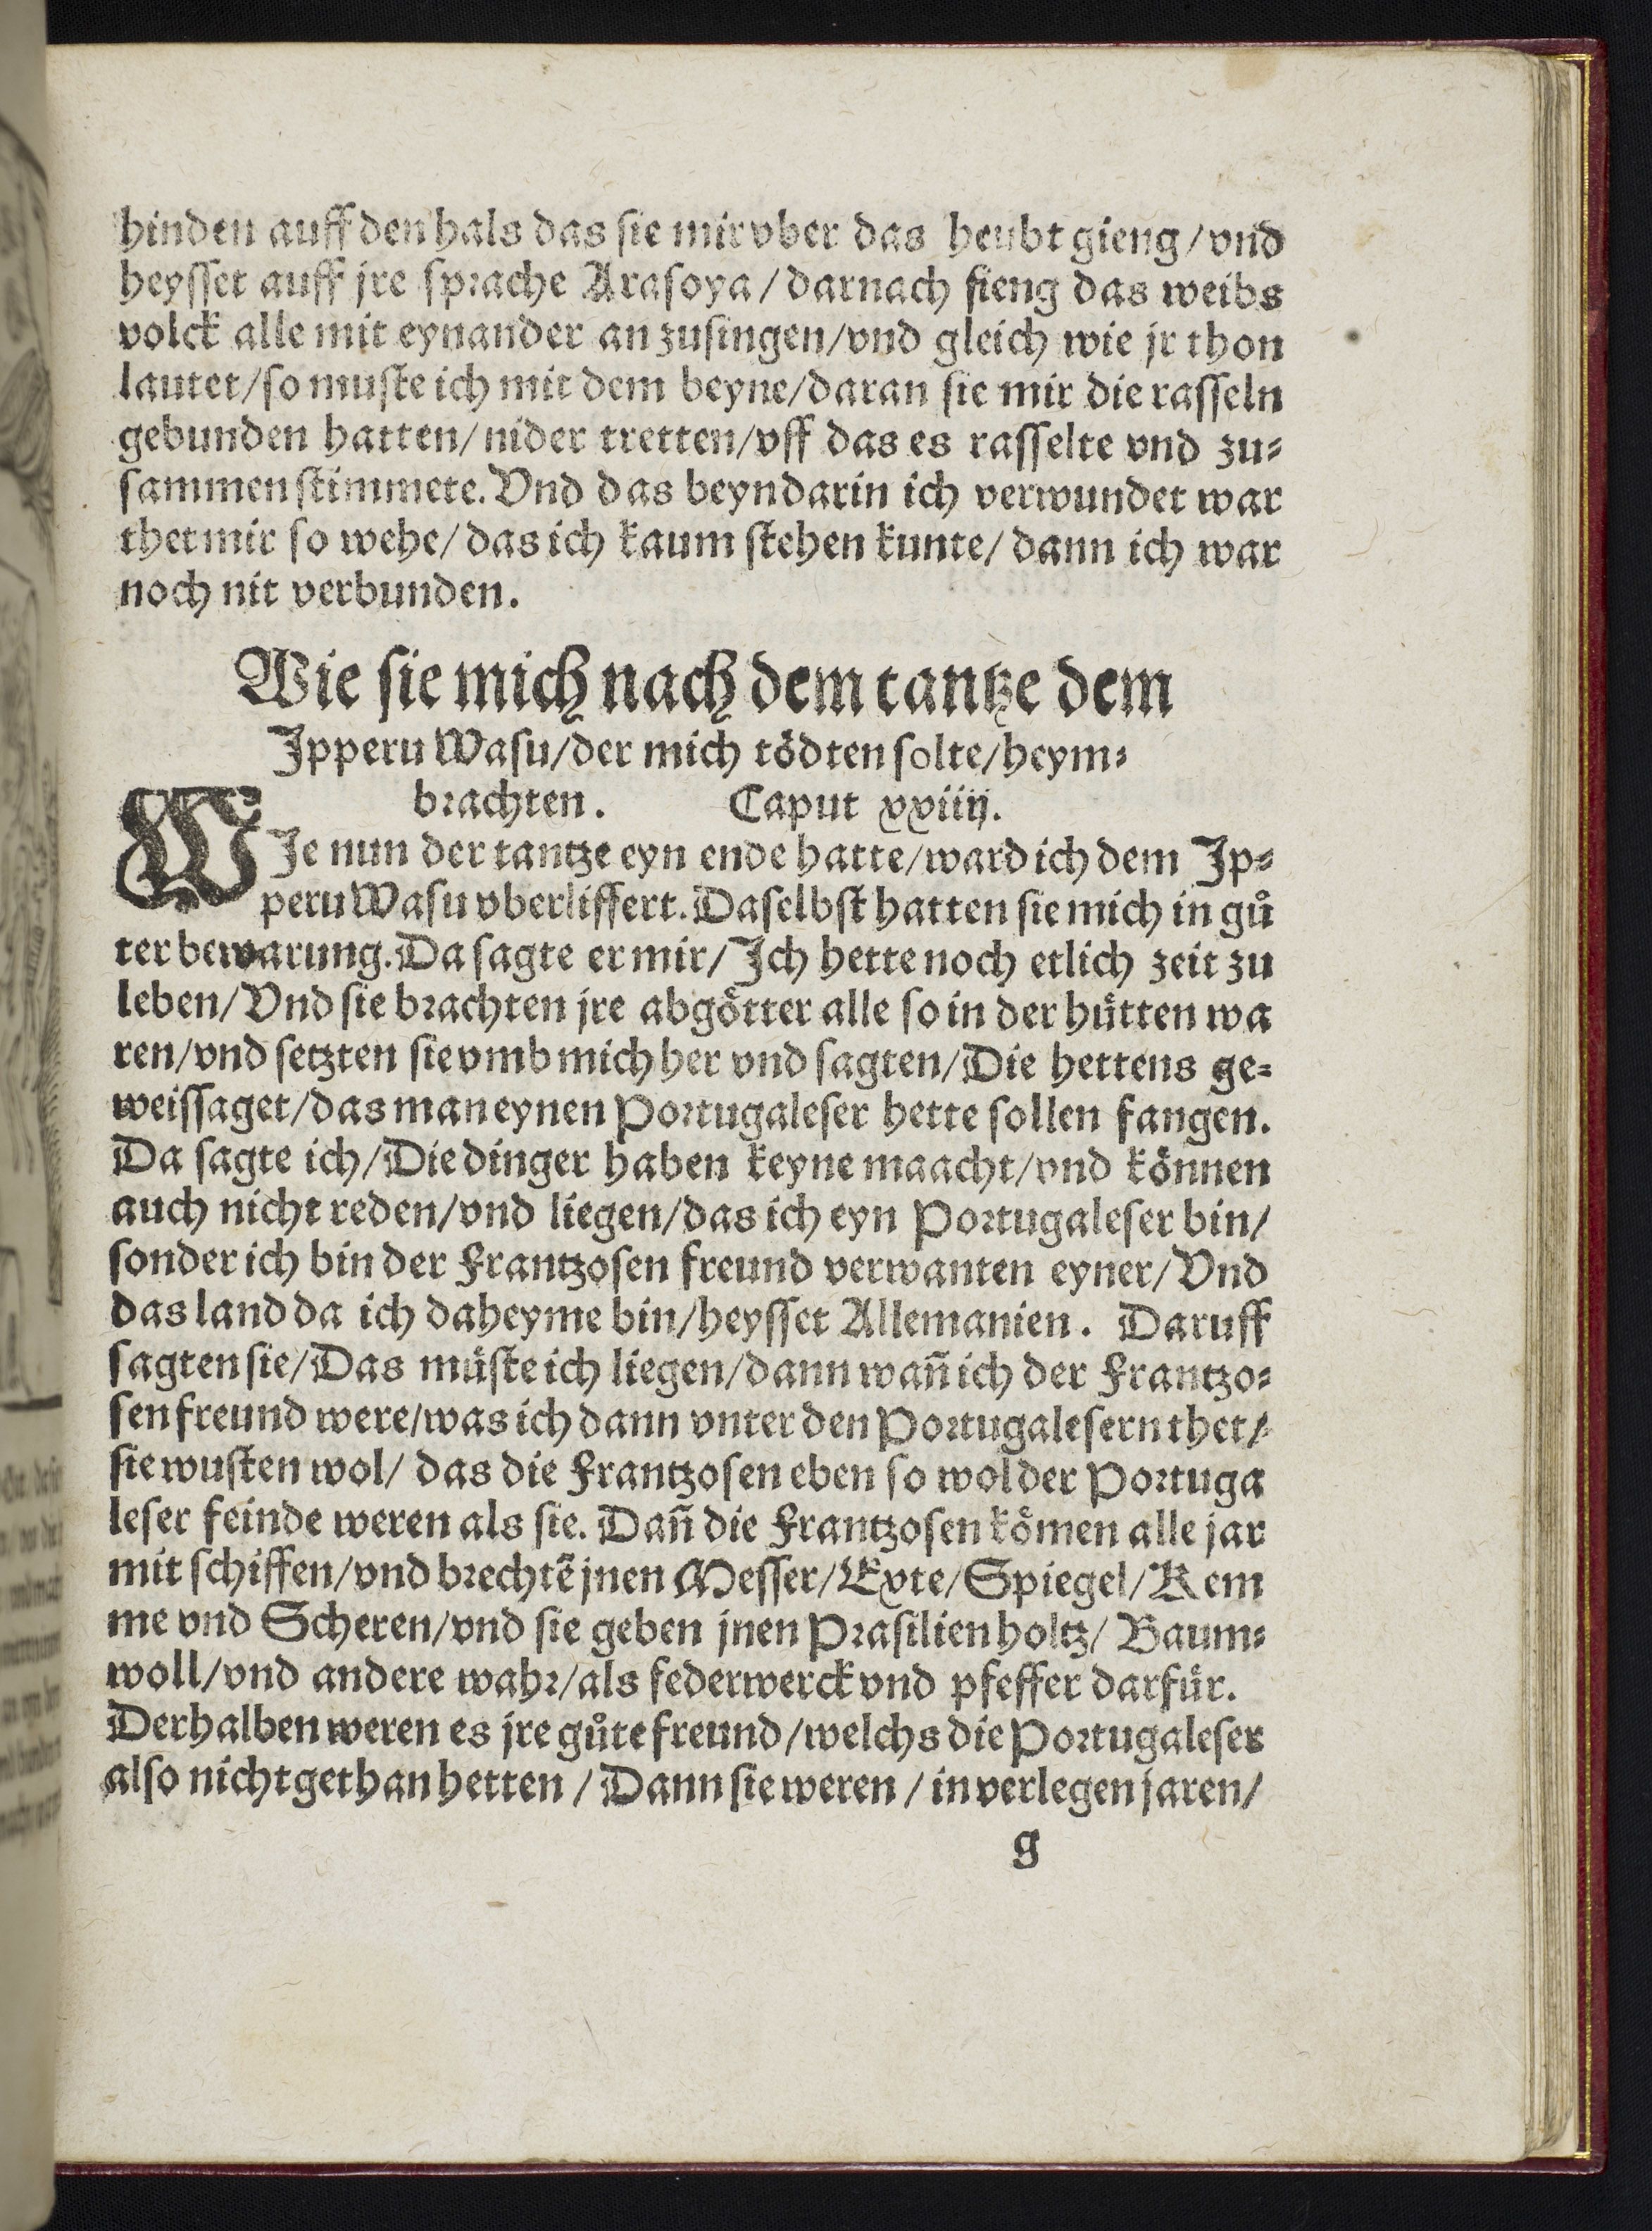 hinden auff den hals das sie mir vber das heubt gieng/vnd
heysset auff jre sprache Arasoya/darnach fieng das weibs
volck alle mit eynander an zusingen/vnd gleich wie jr thon
lautet/so muste ich mit dem beyne/daran sie mir die rasseln
gebunden hatten/nider tretten/vff das es rasselte vnd zu⸗
sammen stimmete. Vnd das beyn darin ich verwundet war
thet mir so wehe/das ich kaum stehen kunte/dann ich war
noch nit verbunden.
Wie sie mich nach dem tantze dem
Ipperu Wasu/der mich tödten solte/heym⸗
brachten. Caput xxiiij.
WIe nun der tantze eyn ende hatte/ward ich dem Ip⸗
peru Wasu vberliffert. Daselbst hatten sie mich in gů
ter bewarung. Da sagte er mir/Ich hette noch etlich zeit zu
leben/Vnd sie brachten jre abgötter alle so in der hütten wa
ren/vnd setzten sie vmb mich her vnd sagten/Die hettens ge⸗
weissaget/das man eynen Portugaleser hette sollen fangen.
Da sagte ich/Die dinger haben keyne maacht/vnd können
auch nicht reden/vnd liegen/das ich eyn Portugaleser bin/
sonder ich bin der Frantzosen freund verwanten eyner/Vnd
das land da ich daheyme bin/heysset Allemanien. Daruff
sagten sie/Das müste ich liegen/dann wañ ich der Frantzo⸗
sen freund were/was ich dann vnter den Portugalesern thet/
sie wusten wol/das die Frantzosen eben so wol der Portuga
leser feinde weren als sie. Dañ die Frantzosen kömen alle jar
mit schiffen/vnd brechtẽ jnen Messer/Exte/Spiegel/Kem
me vnd Scheren/vnd sie geben jnen Prasilien holtz/Baum⸗
woll/vnd andere wahr/als federwerck vnd pfeffer darfür.
Derhalben weren es jre gůte freund/welchs die Portugaleser
also nicht gethan hetten/Dann sie weren/in verlegen jaren/
g